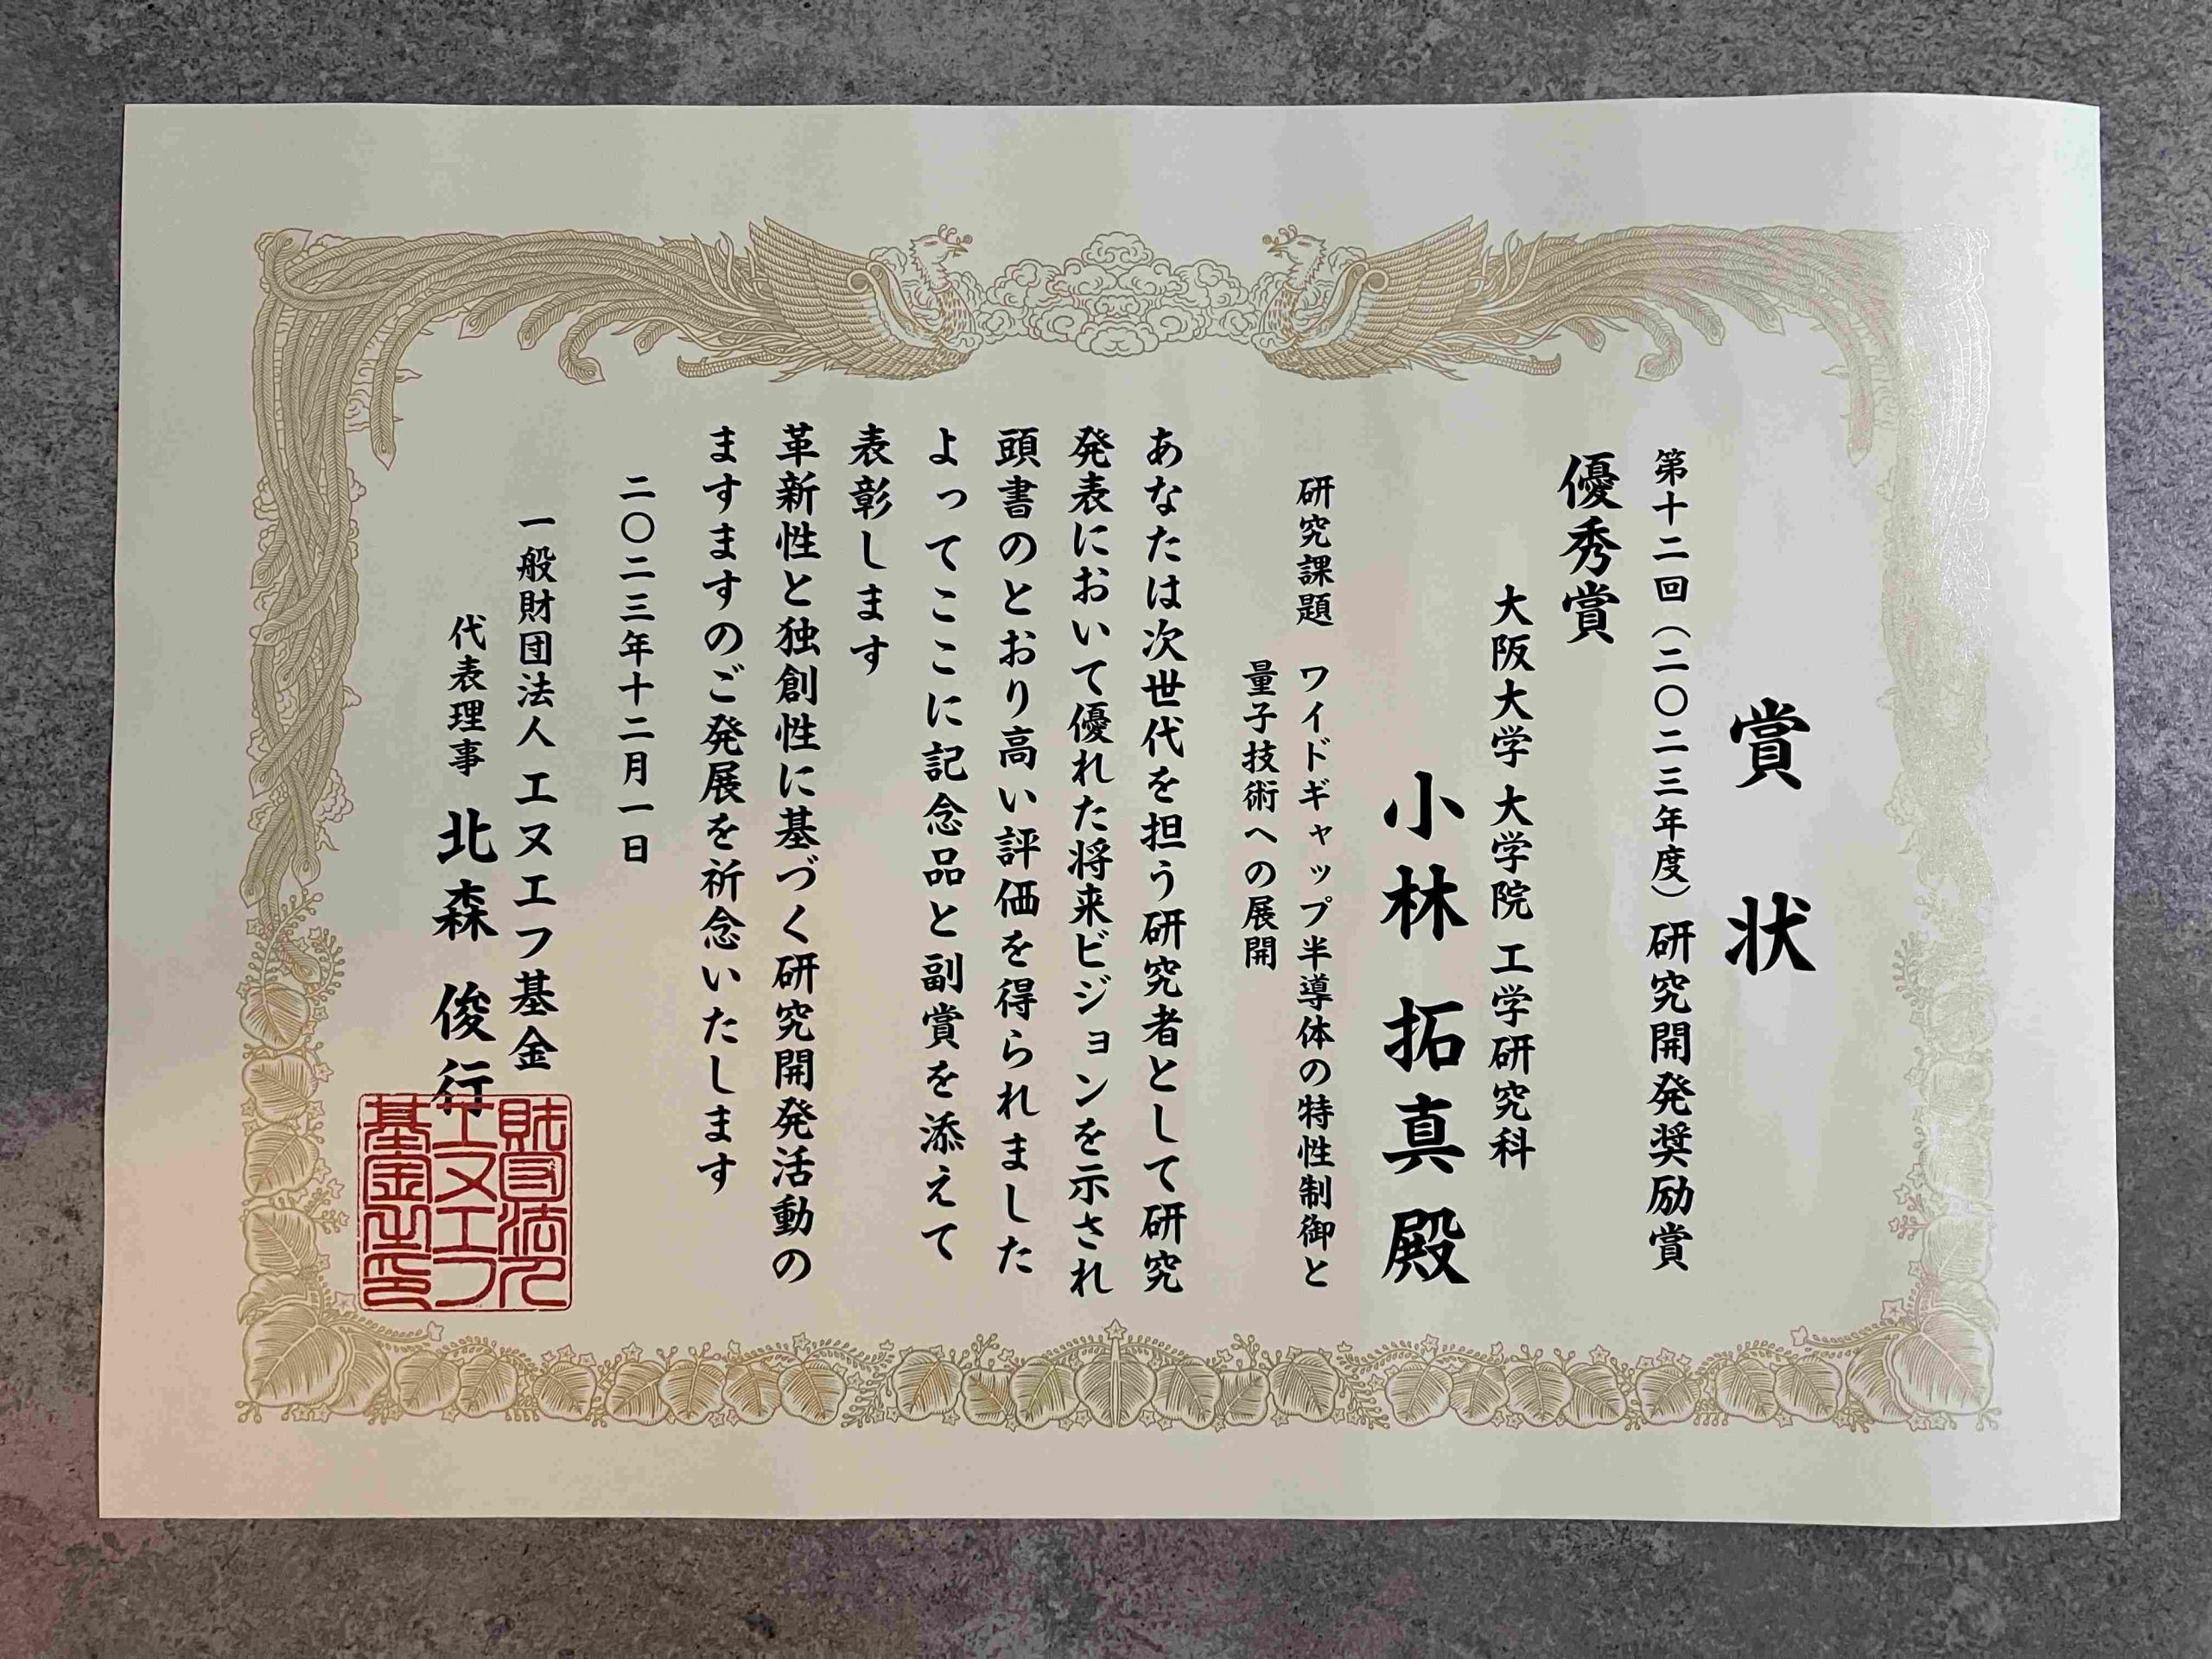 賞状
第十二回（二〇二三年度）研究開発奨励賞
優秀賞
大阪大学 大学院 工学研究科
小林 拓真 殿
研究課題 ワイドギャップ半導体の特性制御と
量子技術への展開
あなたは次世代を担う研究者として研究
発表において優れた将来ビジョンを示され
頭書のとおり高い評価を得られました
よってここに記念品と副賞を添えて
表彰します
革新性と独創性に基づく研究開発活動の
ますますのご発展を祈念いたします
二〇二三年十二月一日
一般財団法人 エヌエフ基金
代表理事 北森 俊行
財団法人
エヌエフ
基金之印